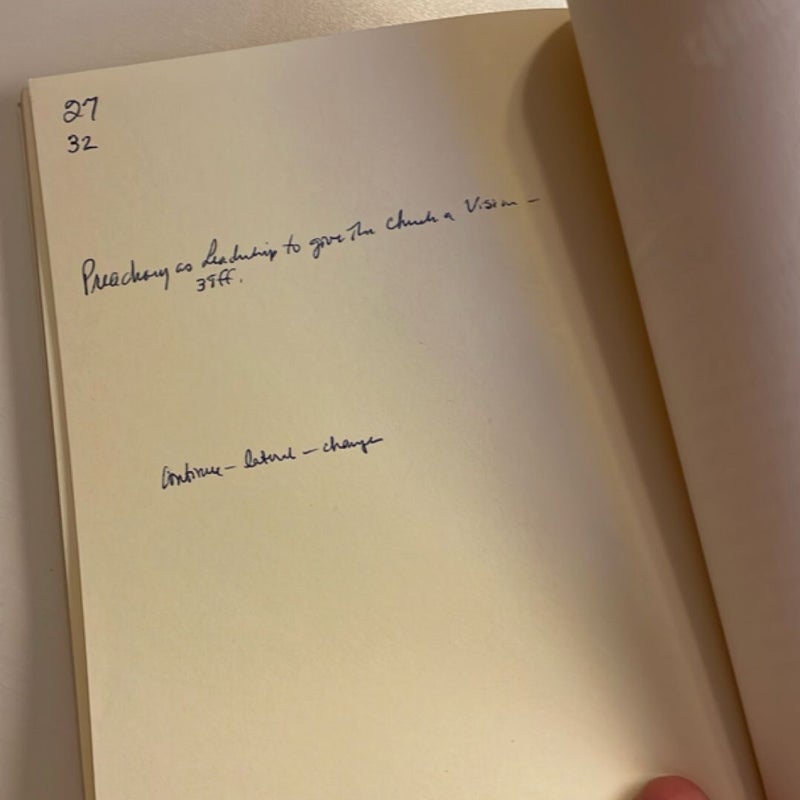 27
32
Preaching as Leadership to give The Church a Vision –
39ff.
Continue – lateral – change